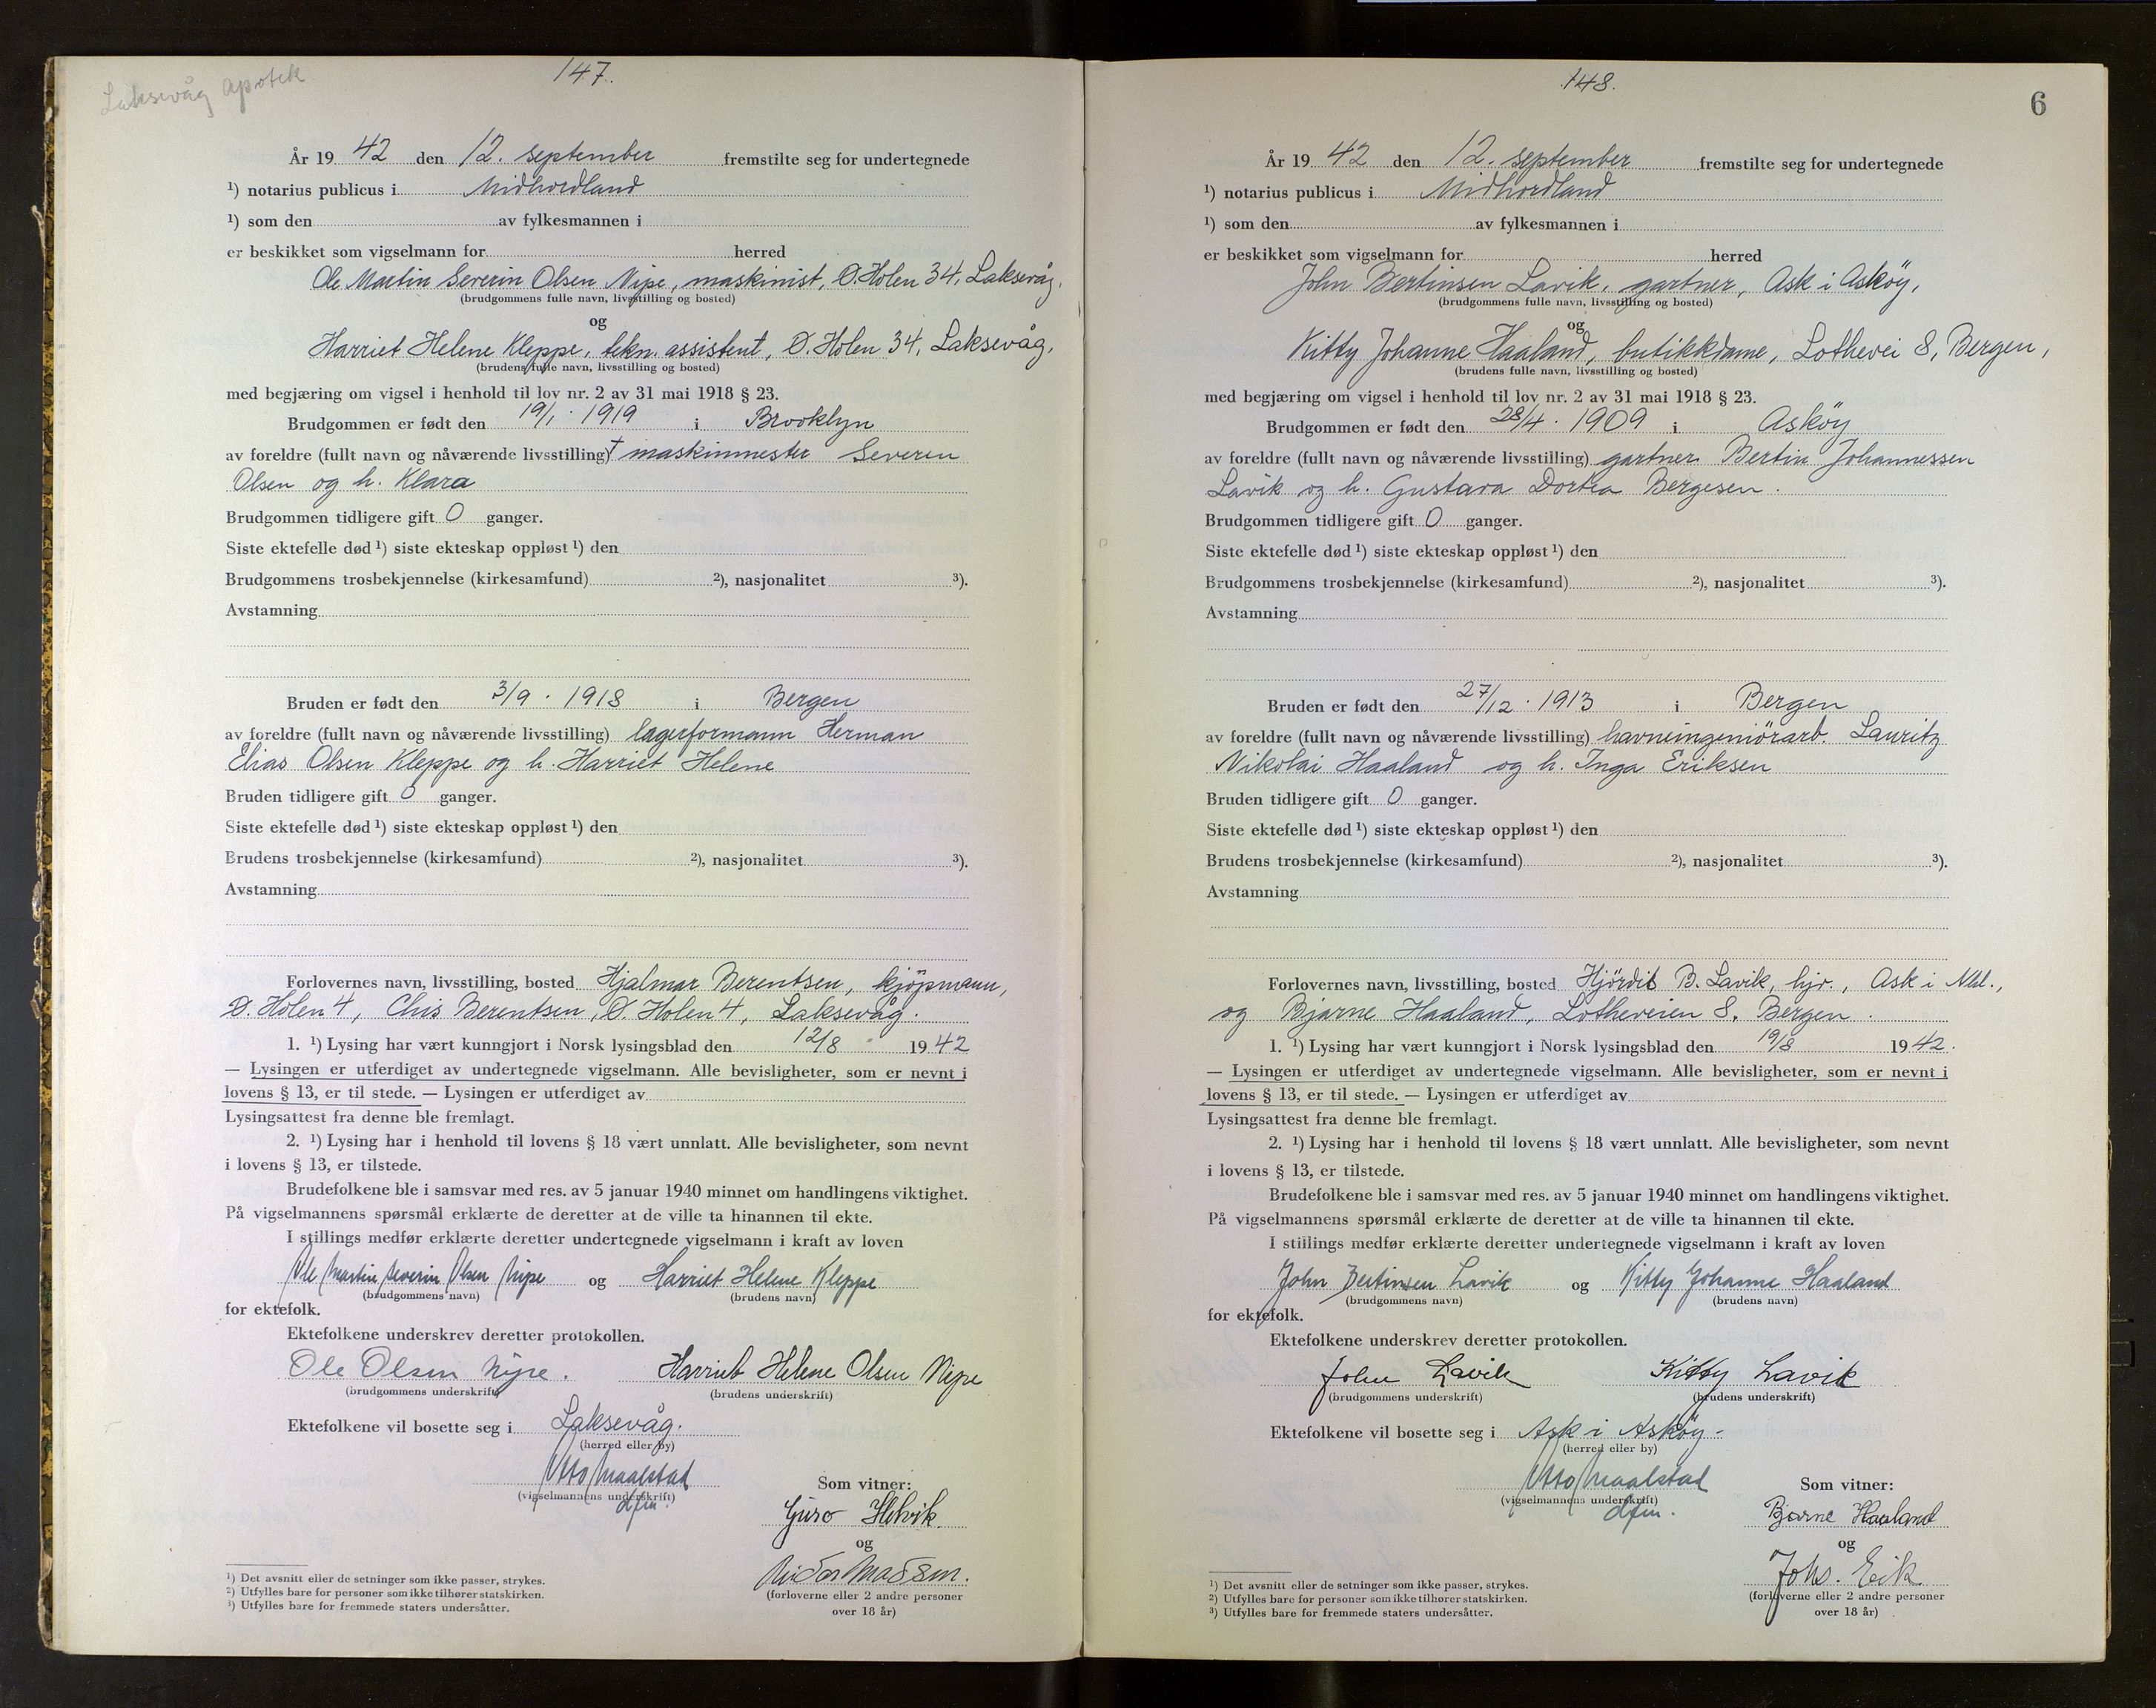 Laksevåg apotek
147.
År 19 42 den 12. september fremstilte seg for undertegnede
¹) notarius publicus i Midhordland
¹) som den av fylkesmannen i
er beskikket som vigselmann for herred
Ole Martin Severin Olsen Nipe, maskinist, D. Holen 34, Laksevåg,
(brudgommens fulle navn, livsstilling og bosted)
og
Harriet Helene Kleppe, tekn. assistent, D. Holen 34, Laksevåg,
(brudens fulle navn, livsstilling og bosted)
med begjæring om vigsel i henhold til lov nr. 2 av 31 mai 1918 § 23.
Brudgommen er født den 19/1. 1919 i Brooklyn
av foreldre (fullt navn og nåværende livsstilling) † maskinmester Severin
Olsen og h. Klara
Brudgommen tidligere gift 0 ganger.
Siste ektefelle død ¹) siste ekteskap oppløst ¹) den
Brudgommens trosbekjennelse (kirkesamfund) ²), nasjonalitet ³).
Avstamning
Bruden er født den 3/9. 1918 i Bergen
av foreldre (fullt navn og nåværende livsstilling) lagerformann Herman
Elias Olsen Kleppe og h. Harriet Helene
Bruden tidligere gift 0 ganger.
Siste ektefelle død ¹) siste ekteskap oppløst ¹) den
Brudens trosbekjennelse (kirkesamfund) ²), nasjonalitet ³).
Avstamning
Forlovernes navn, livsstilling, bosted Hjalmar Berentsen, kjöpmann,
D. Holen 4, Chris Berentsen, D. Holen 4, Laksevåg.
1. ¹) Lysing har vært kunngjort i Norsk lysingsblad den 12/8 19 42
— Lysingen er utferdiget av undertegnede vigselmann. Alle bevisligheter, som er nevnt i
lovens § 13, er til stede. — Lysingen er utferdiget av
Lysingsattest fra denne ble fremlagt.
2. ¹) Lysing har i henhold til lovens § 18 vært unnlatt. Alle bevisligheter, som nevnt
i lovens § 13, er tilstede.
Brudefolkene ble i samsvar med res. av 5 januar 1940 minnet om handlingens viktighet.
På vigselmannens spørsmål erklærte de deretter at de ville ta hinannen til ekte.
I stillings medfør erklærte deretter undertegnede vigselmann i kraft av loven
Ole Martin Severin Olsen Nipe og Harriet Helene Kleppe
(brudgommens navn) (brudens navn)
for ektefolk.
Ektefolkene underskrev deretter protokollen.
Ole Olsen Nipe. Harriet Helene Olsen Nipe
(brudgommens underskrift) (brudens underskrift)
Ektefolkene vil bosette seg i Laksevåg.
(herred eller by)
Otto Maalstad
(vigselmannens underskrift)
dfm.
Som vitner:
Guro Helvik
og
Reidar Madsen.
(forloverne eller 2 andre personer
over 18 år)
¹) Det avsnitt eller de setninger som ikke passer, strykes.
²) Utfylles bare for personer som ikke tilhører statskirken.
³) Utfylles bare for fremmede staters undersåtter.
148.
6
År 19 42 den 12. september fremstilte seg for undertegnede
¹) notarius publicus i Midhordland
¹) som den av fylkesmannen i
er beskikket som vigselmann for herred
John Bertinsen Lavik, gartner, Ask i Asköy,
(brudgommens fulle navn, livsstilling og bosted)
og
Kitty Johanne Haaland, butikkdame, Lothevei 8, Bergen,
(brudens fulle navn, livsstilling og bosted)
med begjæring om vigsel i henhold til lov nr. 2 av 31 mai 1918 § 23.
Brudgommen er født den 28/4. 1909 i Asköy
av foreldre (fullt navn og nåværende livsstilling) gartner Bertin Johannessen
Lavik og h. Gustava Dortea Bergesen.
Brudgommen tidligere gift 0 ganger.
Siste ektefelle død ¹) siste ekteskap oppløst ¹) den
Brudgommens trosbekjennelse (kirkesamfund) ²), nasjonalitet ³).
Avstamning
Bruden er født den 27/12. 1913 i Bergen
av foreldre (fullt navn og nåværende livsstilling) havneingeniörarb. Lauritz
Nikolai Haaland og h. Inga Eriksen
Bruden tidligere gift 0 ganger.
Siste ektefelle død ¹) siste ekteskap oppløst ¹) den
Brudens trosbekjennelse (kirkesamfund) ²), nasjonalitet ³).
Avstamning
Forlovernes navn, livsstilling, bosted Hjördis B. Lavik, hjv., Ask i
og Bjarne Haaland, Lotheveien 8, Bergen.
1. ¹) Lysing har vært kunngjort i Norsk lysingsblad den 19/8 19 42.
— Lysingen er utferdiget av undertegnede vigselmann. Alle bevisligheter, som er nevnt i
lovens § 13, er til stede. — Lysingen er utferdiget av
Lysingsattest fra denne ble fremlagt.
2. ¹) Lysing har i henhold til lovens § 18 vært unnlatt. Alle bevisligheter, som nevnt
i lovens § 13, er tilstede.
Brudefolkene ble i samsvar med res. av 5 januar 1940 minnet om handlingens viktighet.
På vigselmannens spørsmål erklærte de deretter at de ville ta hinannen til ekte.
I stillings medfør erklærte deretter undertegnede vigselmann i kraft av loven
John Bertinsen Lavik og Kitty Johanne Haaland
(brudgommens navn) (brudens navn)
for ektefolk.
Ektefolkene underskrev deretter protokollen.
John Lavik Kitty Lavik
(brudgommens underskrift) (brudens underskrift)
Ektefolkene vil bosette seg i Ask i Asköy.
(herred eller by)
Otto Maalstad
(vigselmannens underskrift)
dfm.
Som vitner:
Bjarne Haaland
og
Johs. Eik
(forloverne eller 2 andre personer
over 18 år)
¹) Det avsnitt eller de setninger som ikke passer, strykes.
²) Utfylles bare for personer som ikke tilhører statskirken.
³) Utfylles bare for fremmede staters undersåtter.